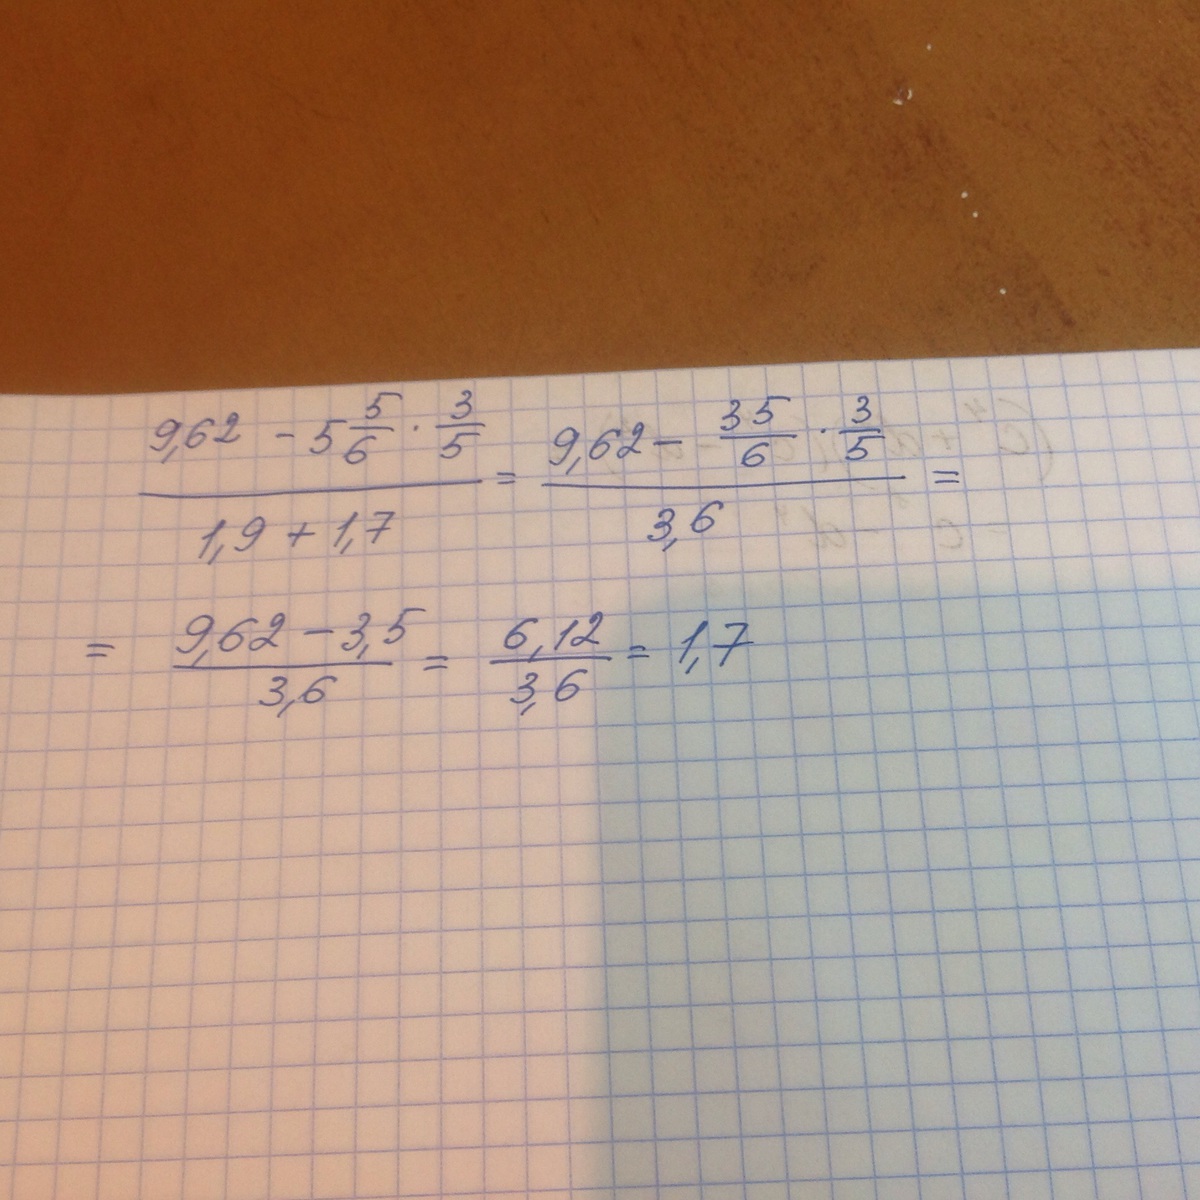 (9,62 - 5 5/6 · 3/5) / (1,9 + 1,7) = (9,62 - 35/6 · 3/5) / 3,6 =
= (9,62 - 3,5) / 3,6 = 6,12 / 3,6 = 1,7